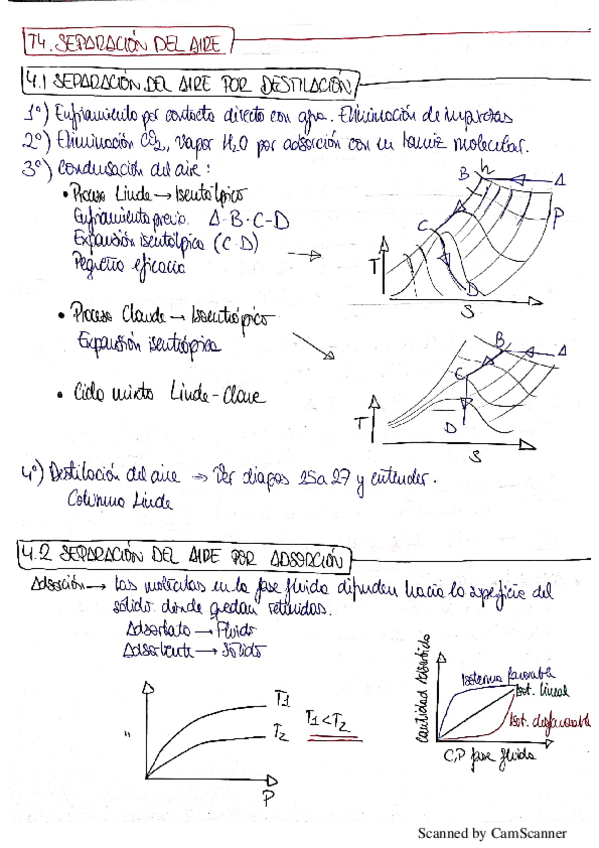 T4. SEPARACIÓN DEL AIRE
4.1 SEPARACIÓN DEL AIRE POR DESTILACIÓN
1º) Enfriamiento por contacto directo con agua. Eliminación de impurezas
2º) Eliminación CO2, vapor H2O por adsorción con un tamiz molecular.
3º) Condensación del aire:
• Proceso Linde → Isentálpico
Enfriamiento previo A-B-C-D
Expansión isentálpica (C-D)
Pequeña eficacia
h
B
A
P
C
T
D
S
• Proceso Claude → Isoentrópico
Expansión isentrópica
B
A
C
T
D
S
• Ciclo mixto Linde-Claude
4º) Destilación del aire → Ver diapos 25 a 27 y entender.
Columna Linde
4.2 SEPARACIÓN DEL AIRE POR ADSORCIÓN
Adsorción → Las moléculas en la fase fluida difunden hacia la superficie del
sólido donde quedan retenidas.
Adsorbato → Fluido
Adsorbente → Sólido
T1
T2
T1 < T2
P
Cantidad adsorbida
Isoterma favorable
Isot. lineal
Isot. desfavorable
C,P fase fluida
Scanned by CamScanner